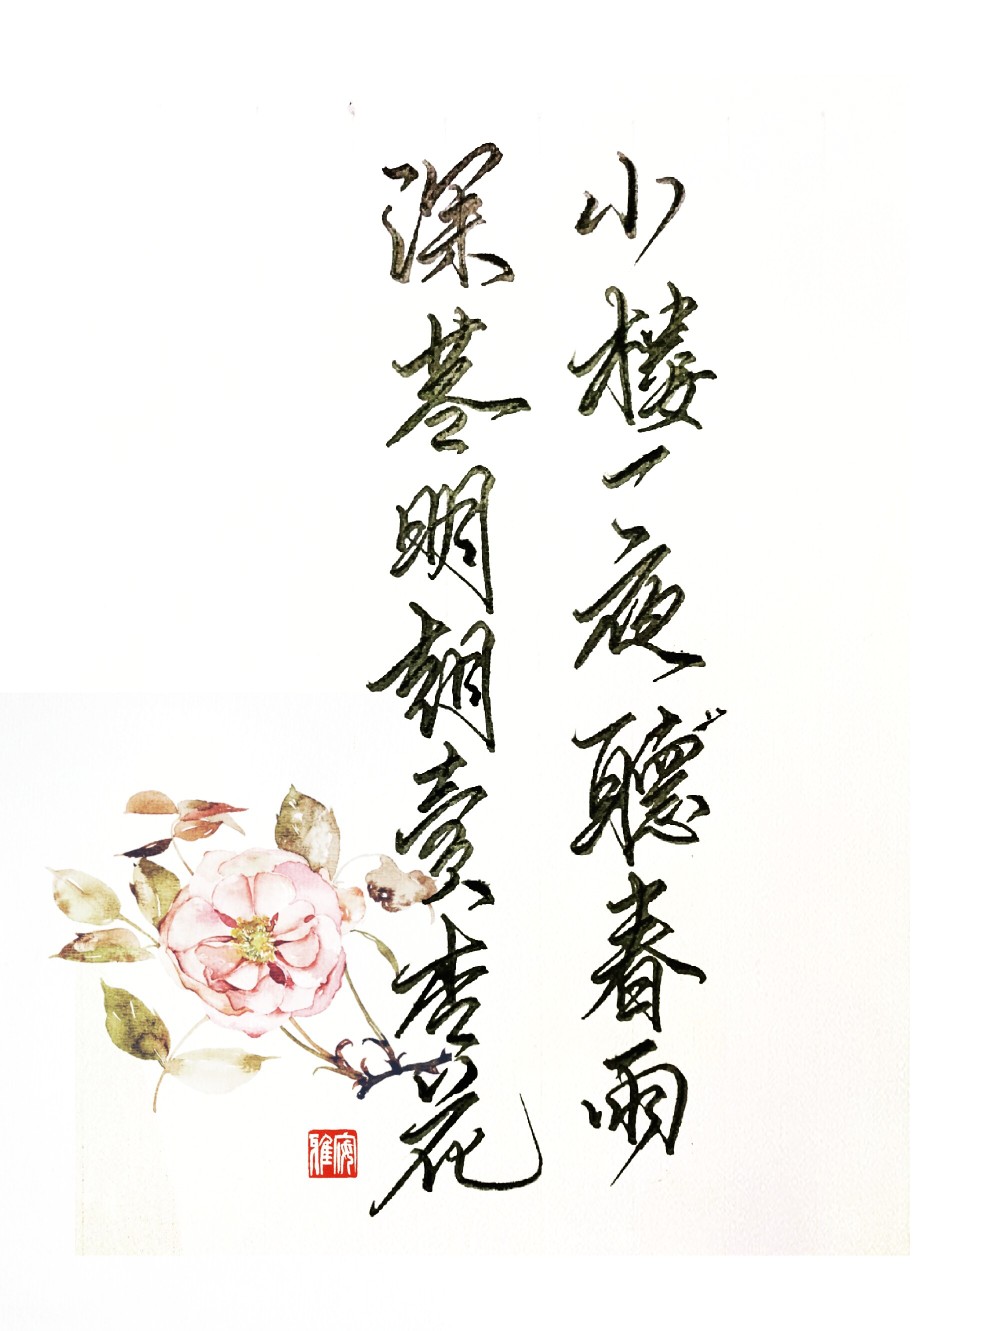 小樓一夜聽春雨
深巷明朝賣杏花